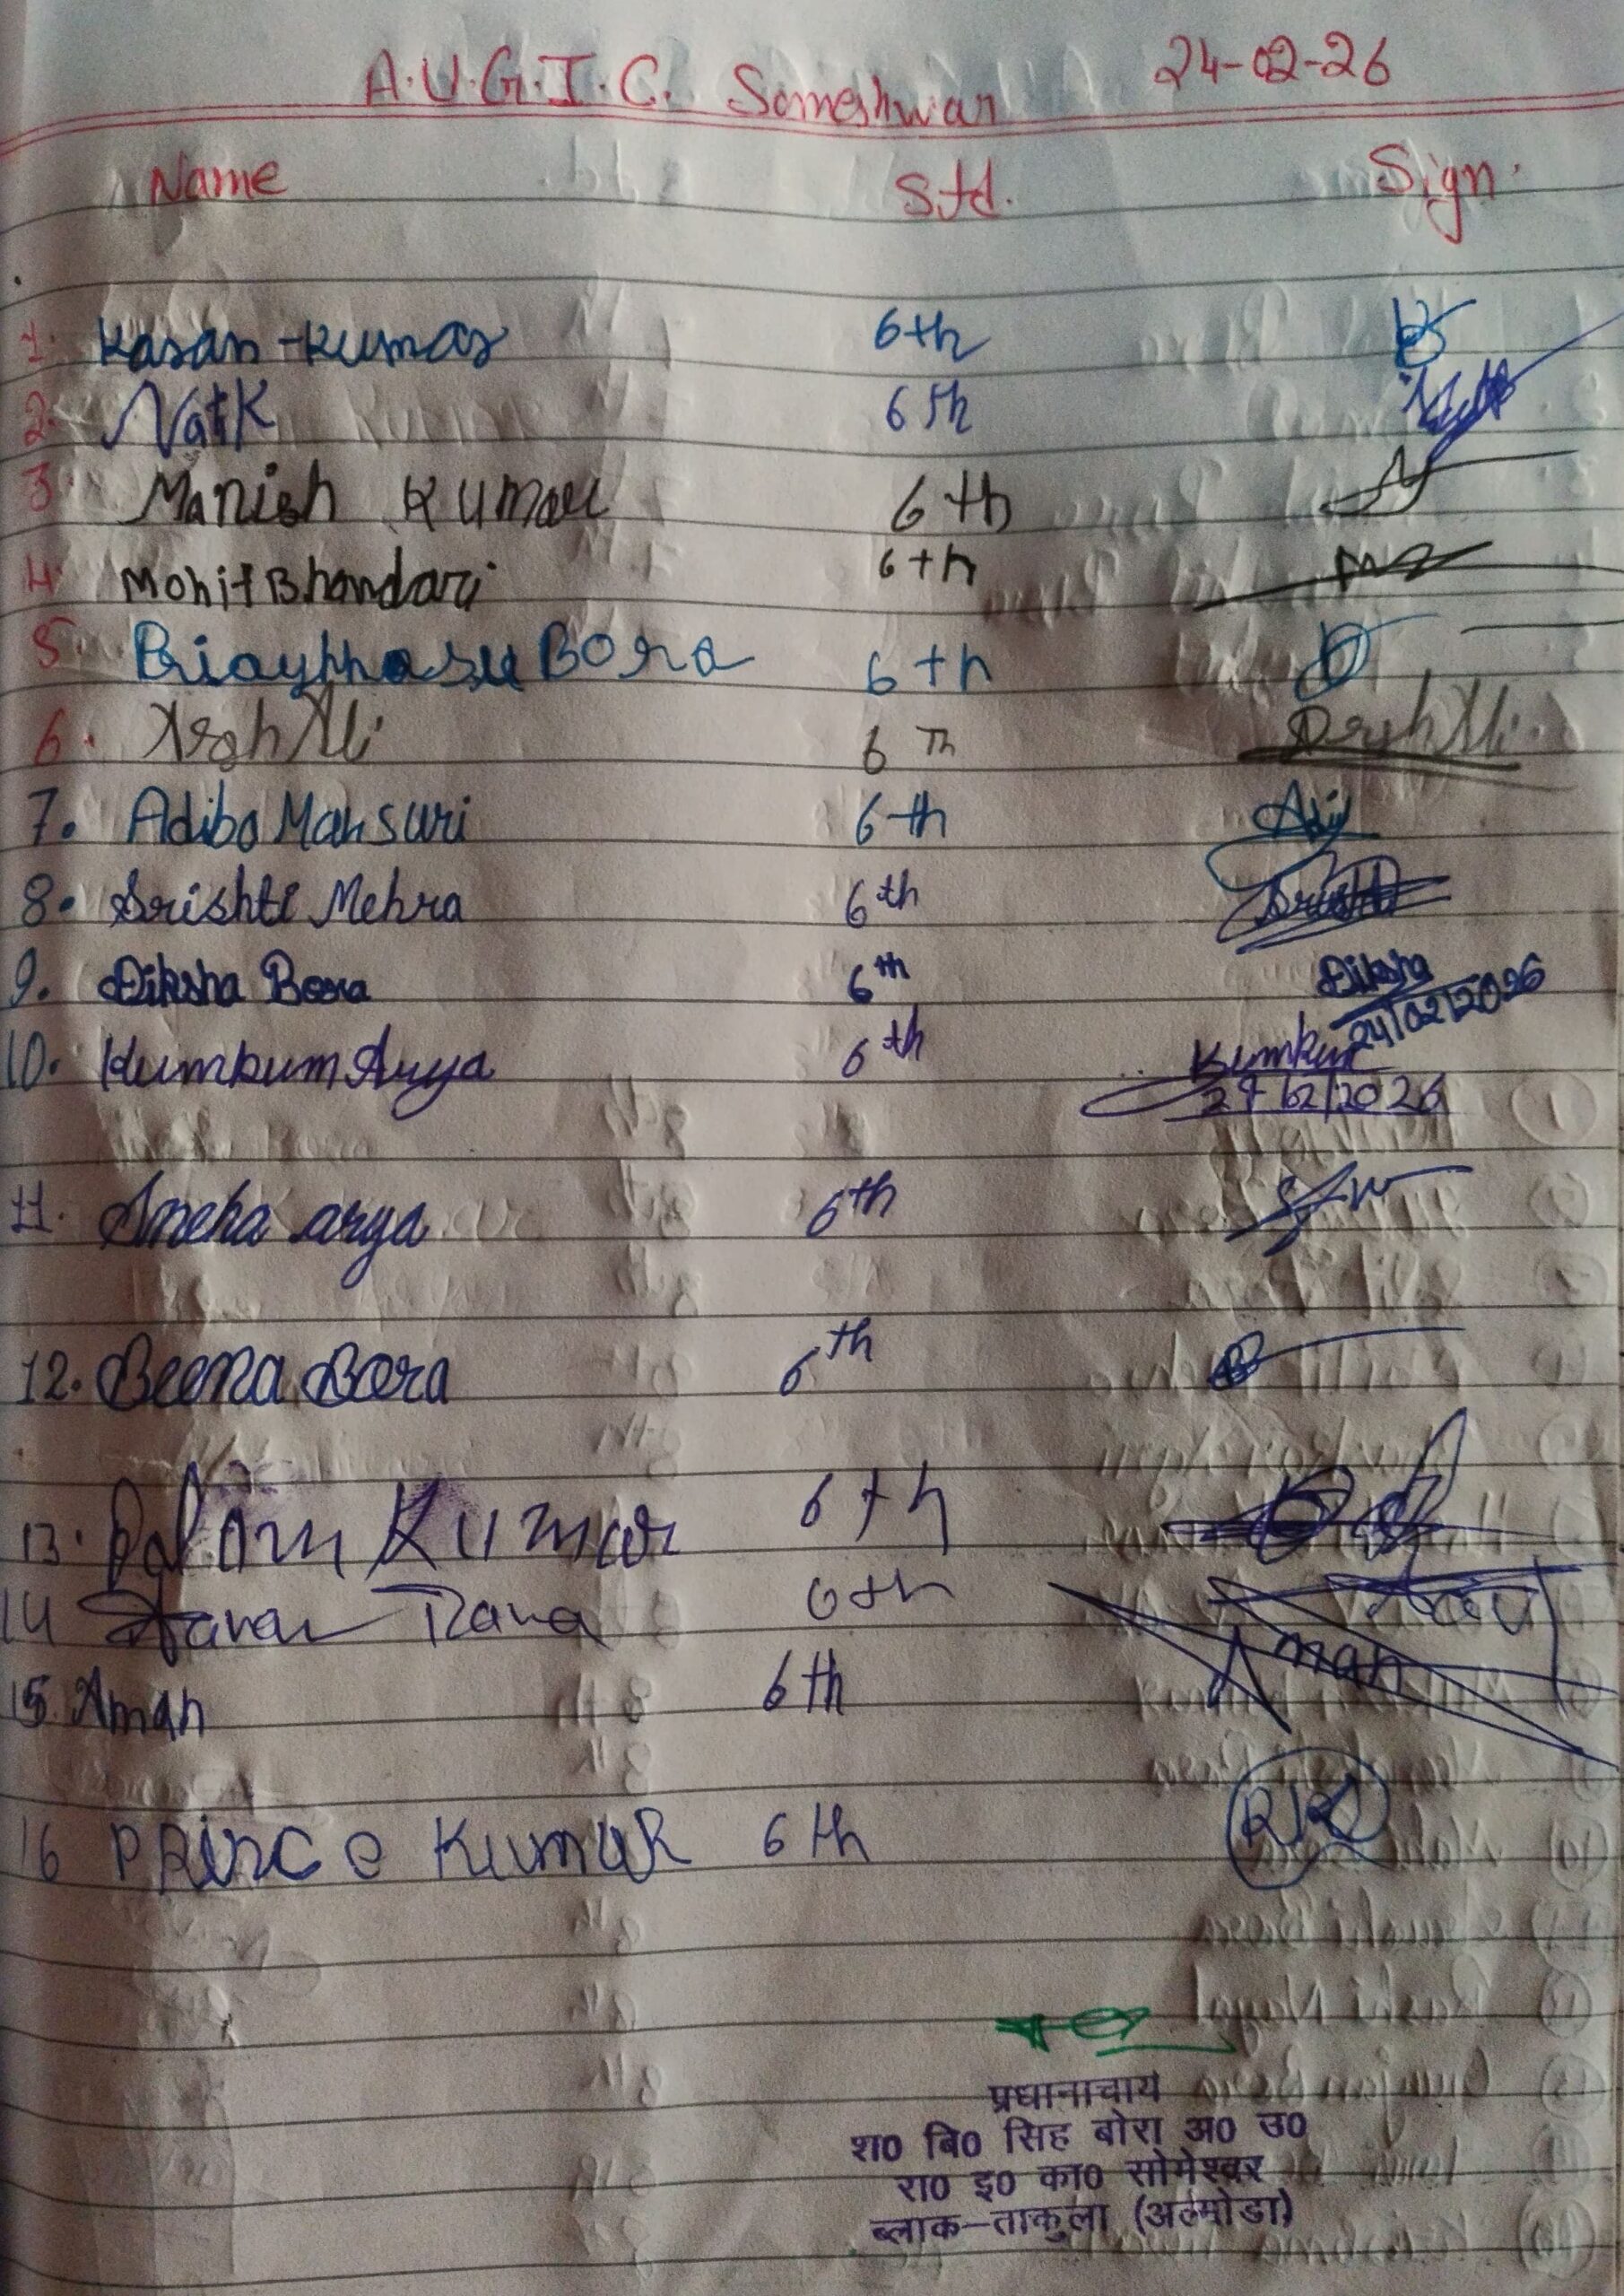 A.U.G.I.C. Someshwar 24-02-26
Name Std. Sign.
1. Karan-Kumar 6th
2. 6th
3. Manish Kumar 6th
4. Mohit Bhandari 6th
5. Bora 6+h
6. Arsh Ali 6 Th Arsh Ali
7. Adiba Mansuri 6th
8. Srishti Mehra 6th Srishti
9. Diksha Bora 6th Diksha
24/02/2026
10. Kumkum Arya 6th Kumkum
24/02/2026
11. Sneha arya 6th
12. Beena Bora 6th
13. Kumar 6th
14 Rana 6th
15. Aman 6th Aman
16 PRince KumaR 6th
प्रधानाचार्य
श0 बि0 सिंह बोरा अ0 उ0
रा0 इ0 का0 सोमेश्वर
ब्लाक-ताकुला (अल्मोडा)